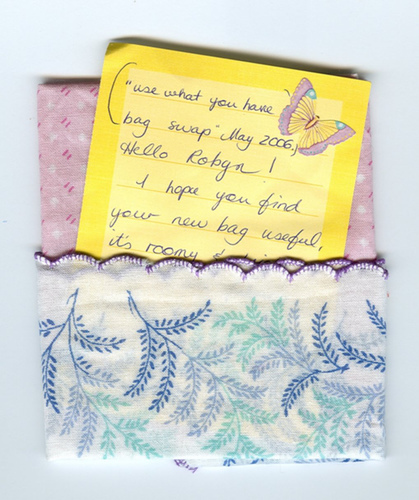 ("use what you have
bag swap" May 2006,)
Hello Robyn!
I hope you find
your new bag useful,
it's roomy